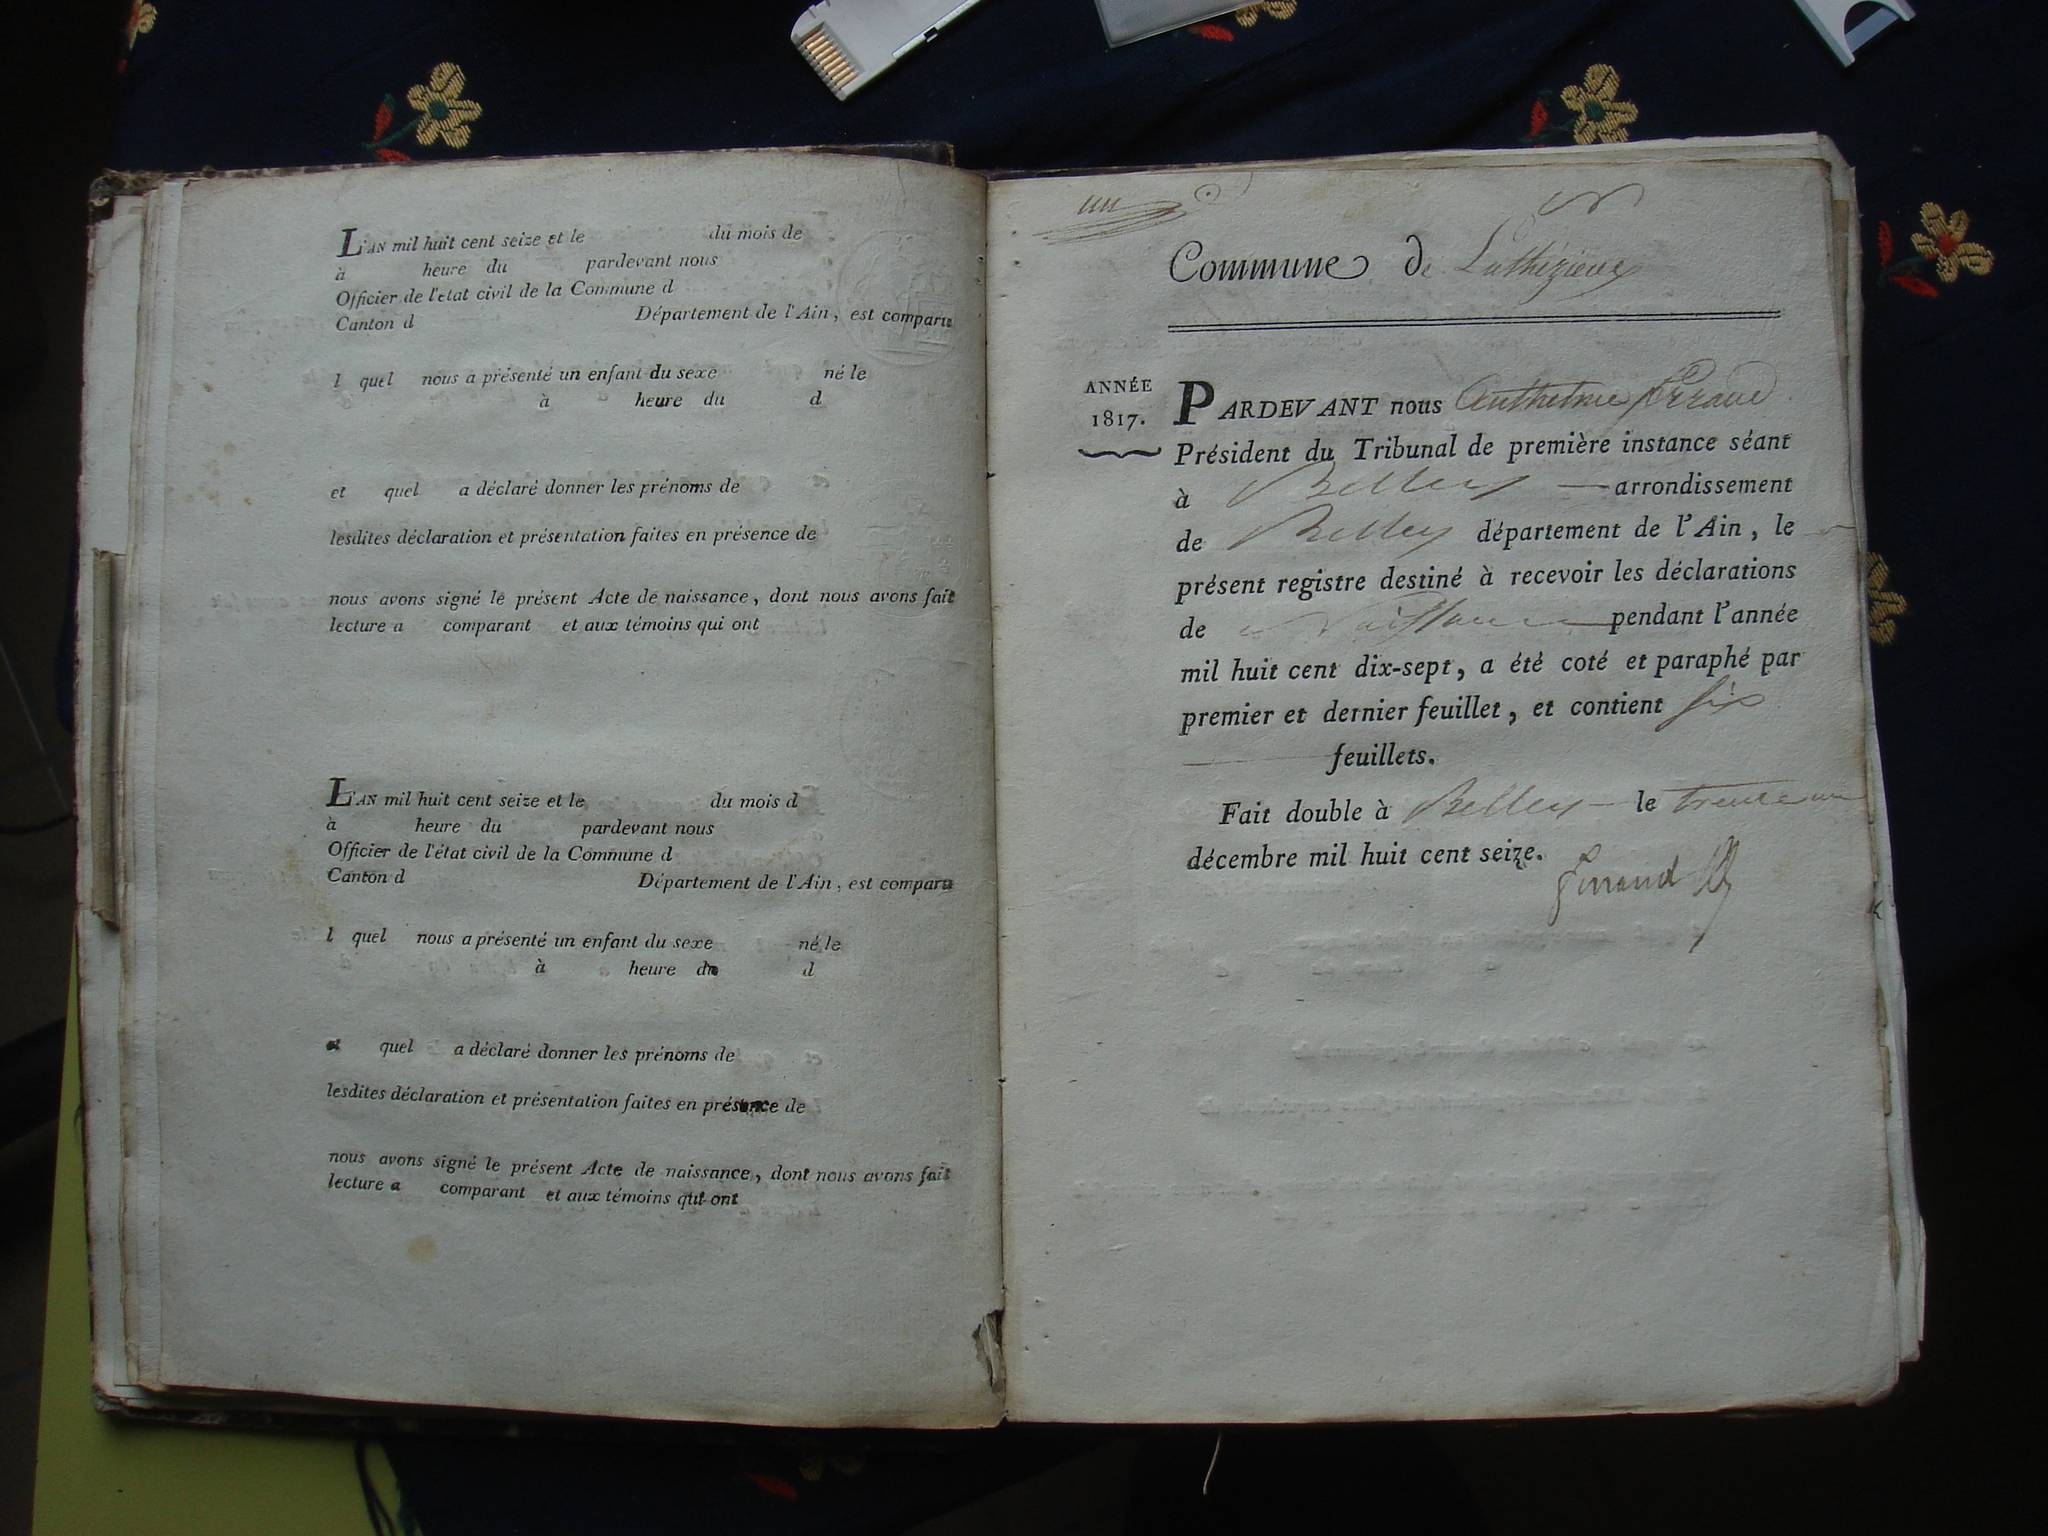 L'AN mil huit cent seize et le du mois de
à heure du pardevant nous
Officier de l'etat civil de la Commune d
Canton d Département de l'Ain, est comparu
l quel nous a présenté un enfant du sexe né le
à heure du d
et quel a déclaré donner les prénoms de
lesdites déclaration et présentation faites en présence de
nous avons signé le présent Acte de naissance, dont nous avons fait
lecture a comparant et aux témoins qui ont
L'AN mil huit cent seize et le du mois d
à heure du pardevant nous
Officier de l'état civil de la Commune d
Canton d Département de l'Ain, est comparu
l quel nous a présenté un enfant du sexe né le
à heure du d
et quel a déclaré donner les prénoms de
lesdites déclaration et présentation faites en présence de
nous avons signé le présent Acte de naissance, dont nous avons fait
lecture a comparant et aux témoins qui ont
un
Commune de Luthézieu
ANNÉE
1817.
PARDEVANT nous Anthelme
Président du Tribunal de première instance séant
à Belley arrondissement
de Belley département de l'Ain, le
présent registre destiné à recevoir les déclarations
de Naissance pendant l'année
mil huit cent dix-sept, a été coté et paraphé par
premier et dernier feuillet, et contient six
feuillets.
Fait double à Belley le trente un
décembre mil huit cent seize.